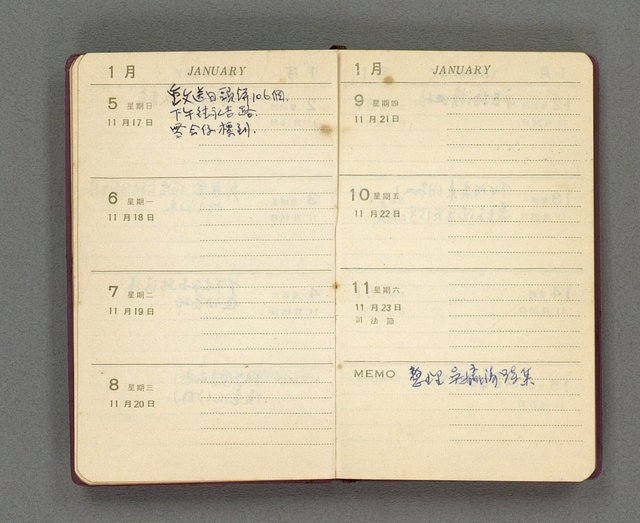 1 月 JANUARY
5 星期日
11 月 17 日
送日頭餅106個.
下午往永吉路.
6 星期一
11 月 18 日
7 星期二
11 月 19 日
8 星期三
11 月 20 日
1 月 JANUARY
9 星期四
11 月 21 日
10 星期五
11 月 22 日
11 星期六
11 月 23 日
司 法 節
MEMO 整理 吳 詩集